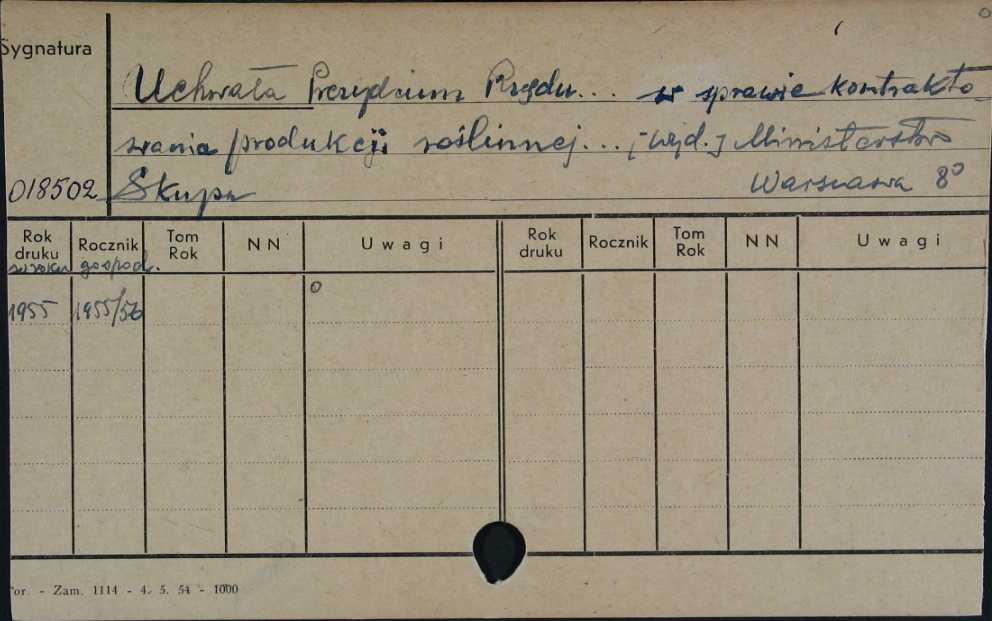 Sygnatura
Uchwała Prezydium Rządu... w sprawie kontrakto-
wania produkcji roślinnej... ; [wyd.] Ministerstwo
018502 Skupu Warszawa 8°
Rok druku Rocznik Tom Rok N N Uwagi Rok druku Rocznik Tom Rok N N Uwagi
gospod.
1955 1955/56 o
or. - Zam. 1114 - 4. 5. 54 - 1000